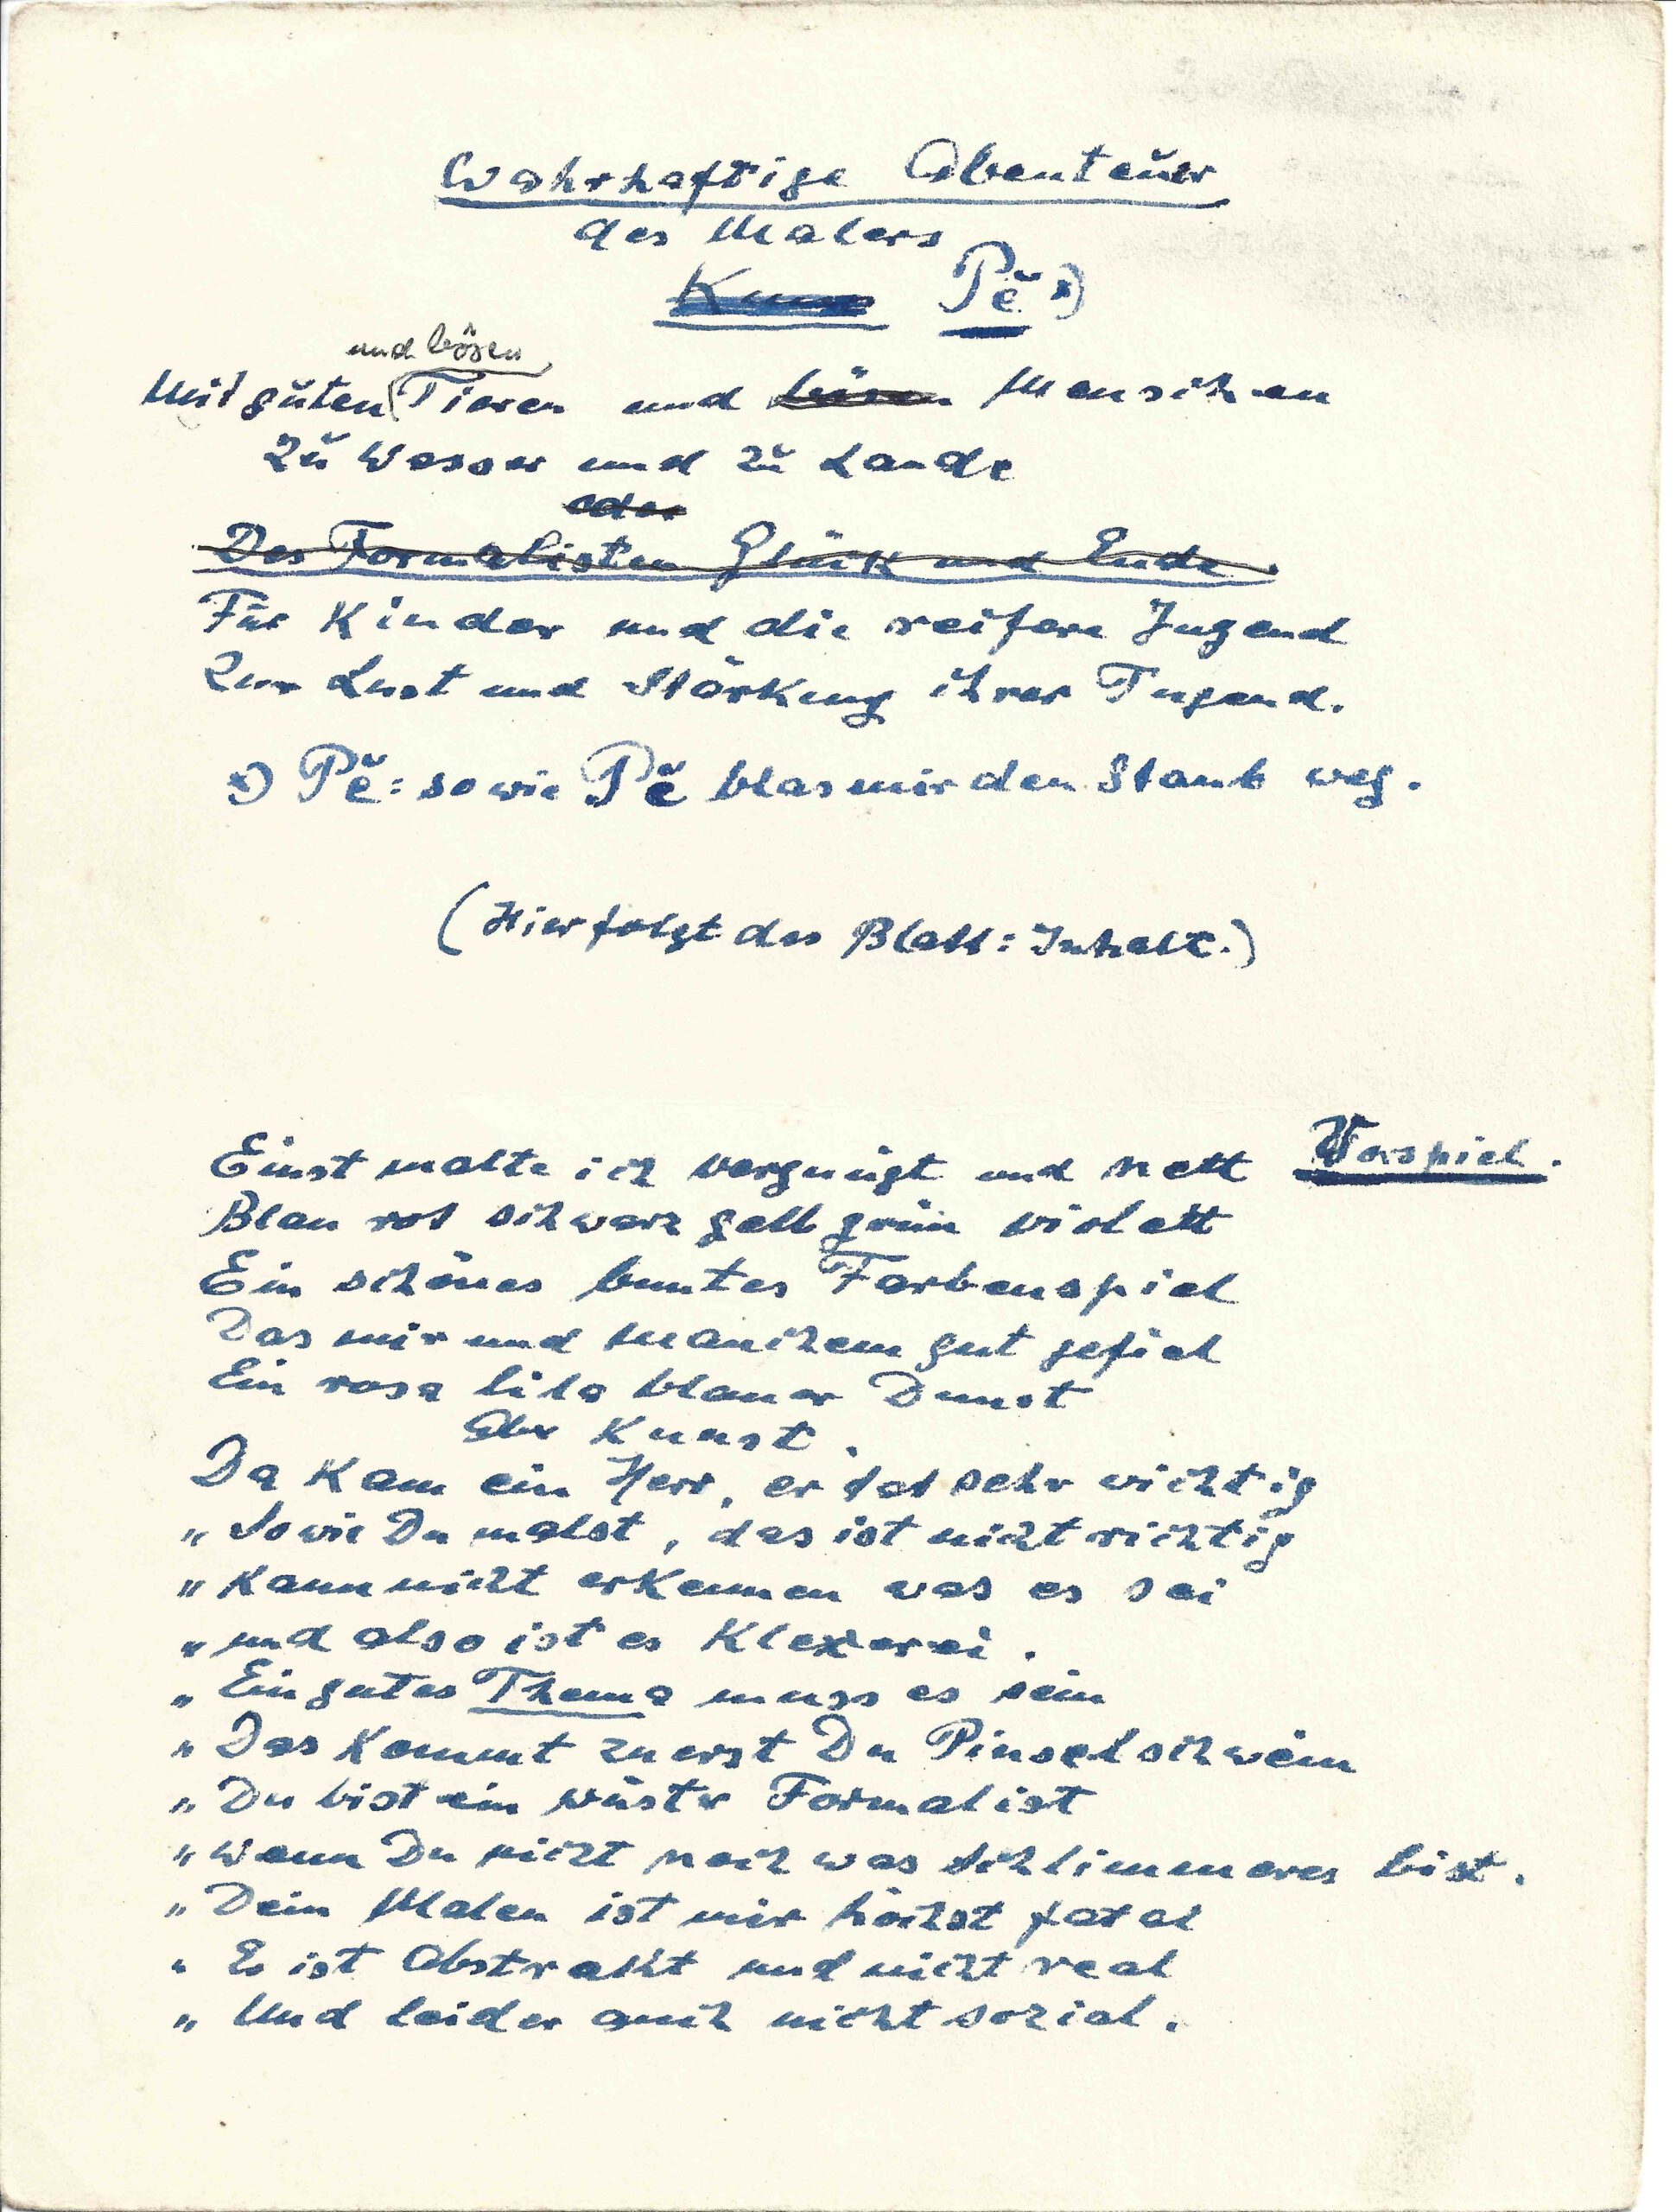 Wahrhaftige Abenteuer
des Malers
Pĕ x)
und bösen
Mit guten Tieren und bösen Menschen
Zu Wasser und zu Lande
oder
Des Formalisten Glück und Ende.
Für Kinder und die reifere Jugend
Zur Lust und Stärkung ihrer Tugend.
x) Pĕ: so wie Pĕ blas mir den Staub weg.
(Hier folgt das Blatt: Inhalt.)
Vorspiel.
Einst malte ich vergnügt und nett
Blau rot schwarz gelb grün violett
Ein schönes buntes Farbenspiel
Das mir und manchem gut gefiel
Ein rosa lila blauer Dunst
Aber Kunst.
Da kam ein Herr, er tat sehr wichtig
„ So wie Du malst, das ist nicht richtig
„ Kann nicht erkennen was es sei
„ und also ist es Klexerei.
„ Ein gutes Thema muss es sein
„ Das kommt zuerst Du Pinselschwein
„ Du bist ein wüster Formalist
„ Wenn Du nicht noch was schlimmeres bist.
„ Dein Malen ist mir höchst fatal
„ Es ist Abstrakt und nicht real
„ Und leider auch nicht sozial.